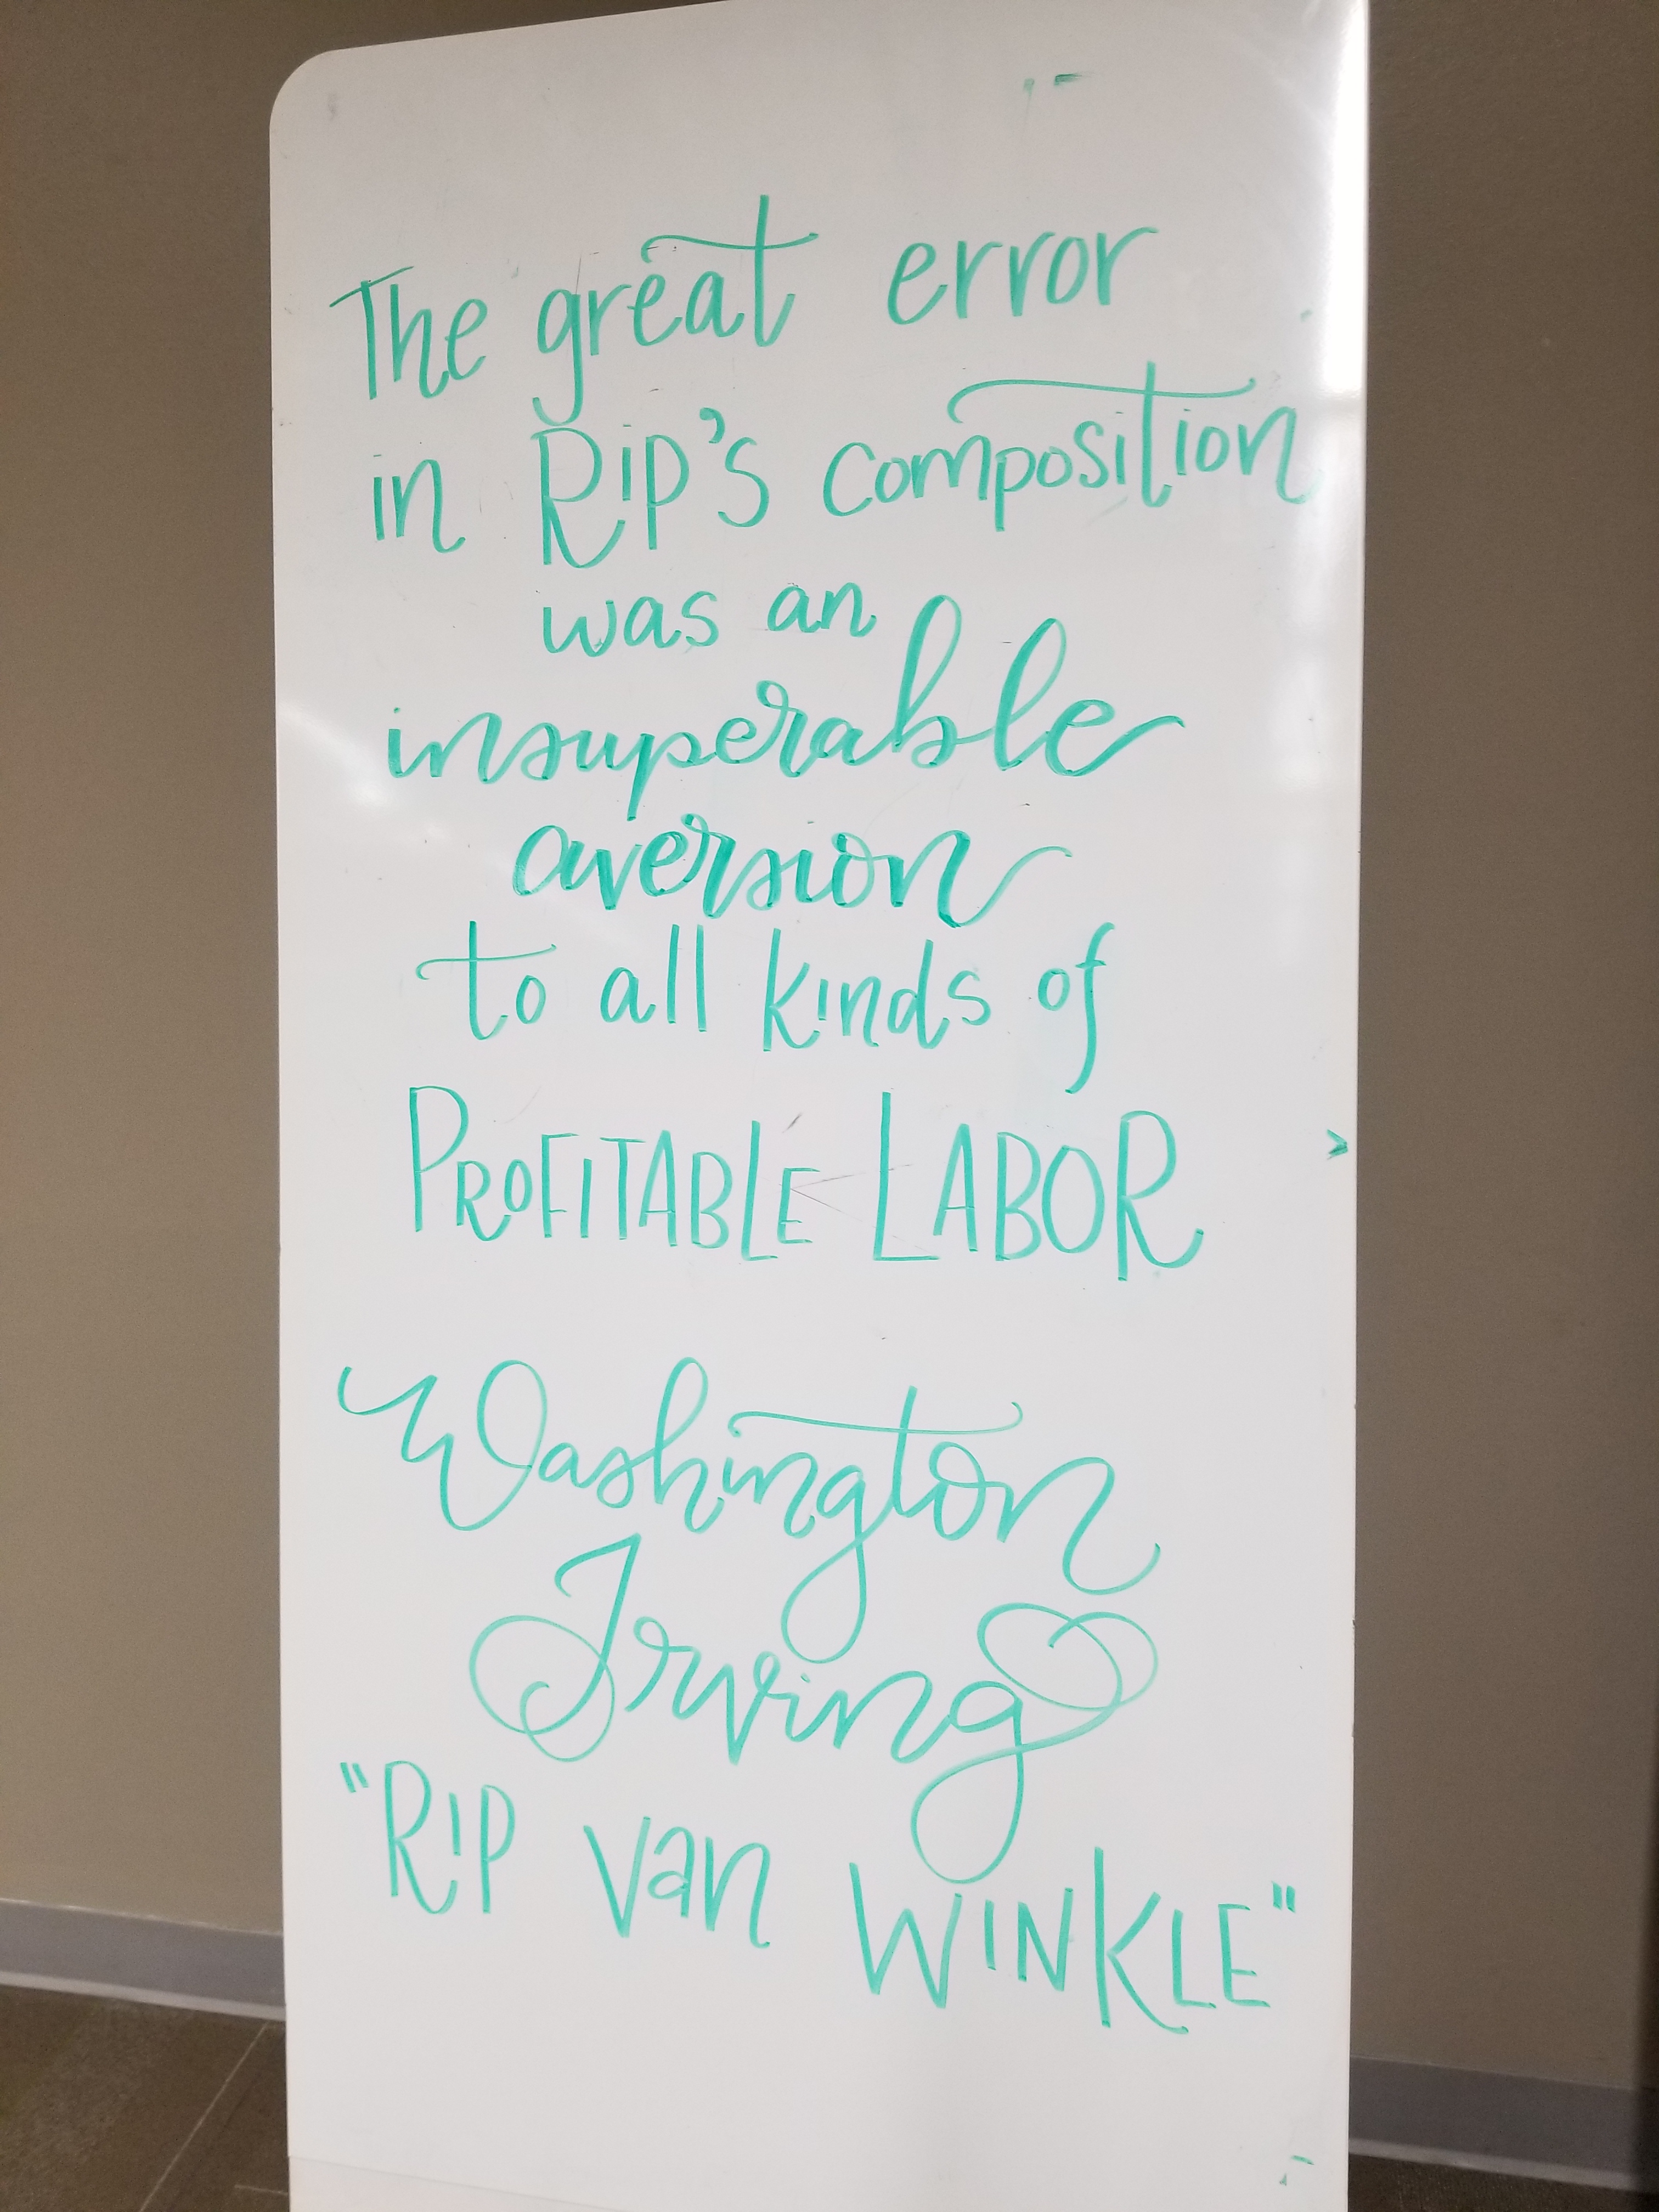 The great error
in Rip's composition
was an
insuperable
aversion
to all kinds of
PROFITABLE LABOR
Washington
Irving
"RIP Van WINKLE"